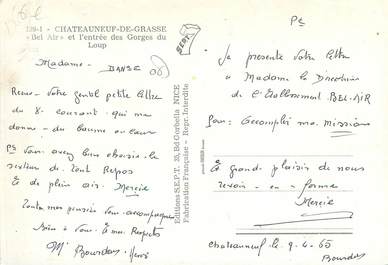 139-1 - CHATEAUNEUF-DE-GRASSE
«Bel Air» et l'entrée des Gorges du
Loup
Madame - DANSE
Reçue - Votre gentil petite lettre
du 8 courant qui ma
donner du baume au cœur
Ps Vous avez bien choisie le
secteur de tout Repos
et de plein air. Mercie
Toutes mes pensées vous accompagne
Bien à Vous et mes Respects
Mr Bourdas
Editions S.E.P.T. 35, Bd Gorbella NICE
Fabrication Française - Repr. Interdite
SEPT
Ps
Je présente votre lettre
à Madame la Directrice
de l'Etablissement BEL-AIR
Pour accomplir ma mission
et grand plaisir de nous
revoir - en - forme
Mercie
Chateauneuf le 9.4.65
Bourdas